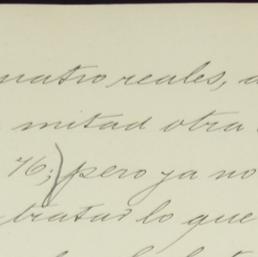 cuatro reales, a
mitad otra
76;) pero ya no
tratar lo que